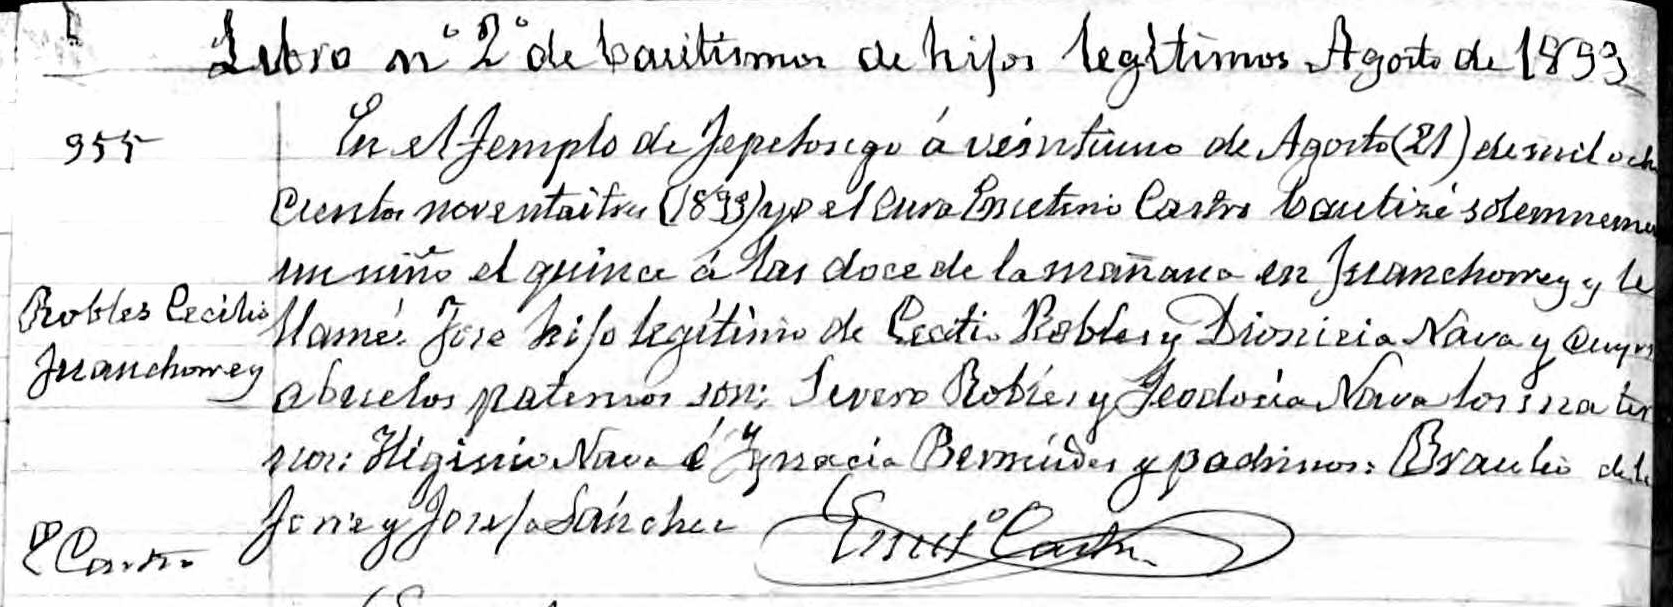 Libro nº 2º de bautismos de hijos legítimos Agosto de 1893
955
En el Templo de Tepetongo á veintiuno de Agosto (21) de mil ocho
cientos noventaitres (1893) yo el Cura Encetino Castro bautizé solemneme
un niño el quince á las doce de la mañana en Juanchorrey y le
Robles Cecilio
Juanchorrey
llamé: José hijo legítimo de Cecilio Robles y Dionicia Nava y cuyos
abuelos paternos son: Severo Robles y Teodosia Nava los mater
nos: Higinio Nava é Ygnacia Bermúdes y padrinos: Braulio de la
Torre y Josefa Sánchez
E Castro
Castro